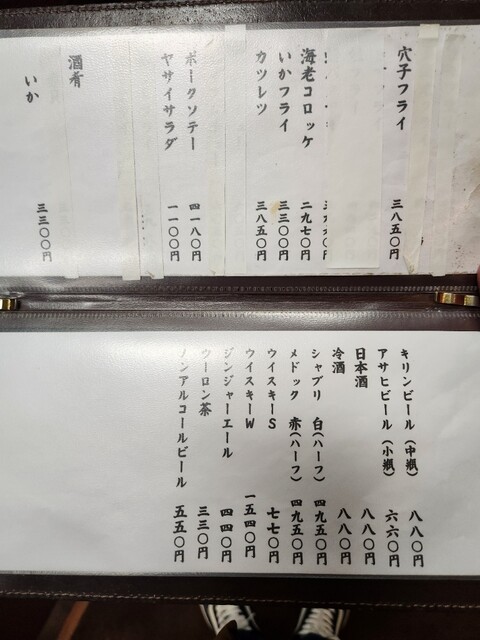 穴子フライ 三八五〇円
海老コロッケ 二九七〇円
いかフライ 三三〇〇円
カツレツ 三八五〇円
ポークソテー 四一八〇円
ヤサイサラダ 一一〇〇円
酒肴
いか 三三〇〇円
キリンビール(中瓶) 八八〇円
アサヒビール(小瓶) 六六〇円
日本酒 八八〇円
冷酒 八八〇円
シャブリ 白(ハーフ) 四九五〇円
メドック 赤(ハーフ) 四九五〇円
ウイスキーS 七七〇円
ウイスキーW 一五四〇円
ジンジャーエール 四四〇円
ウーロン茶 三三〇円
ノンアルコールビール 五五〇円